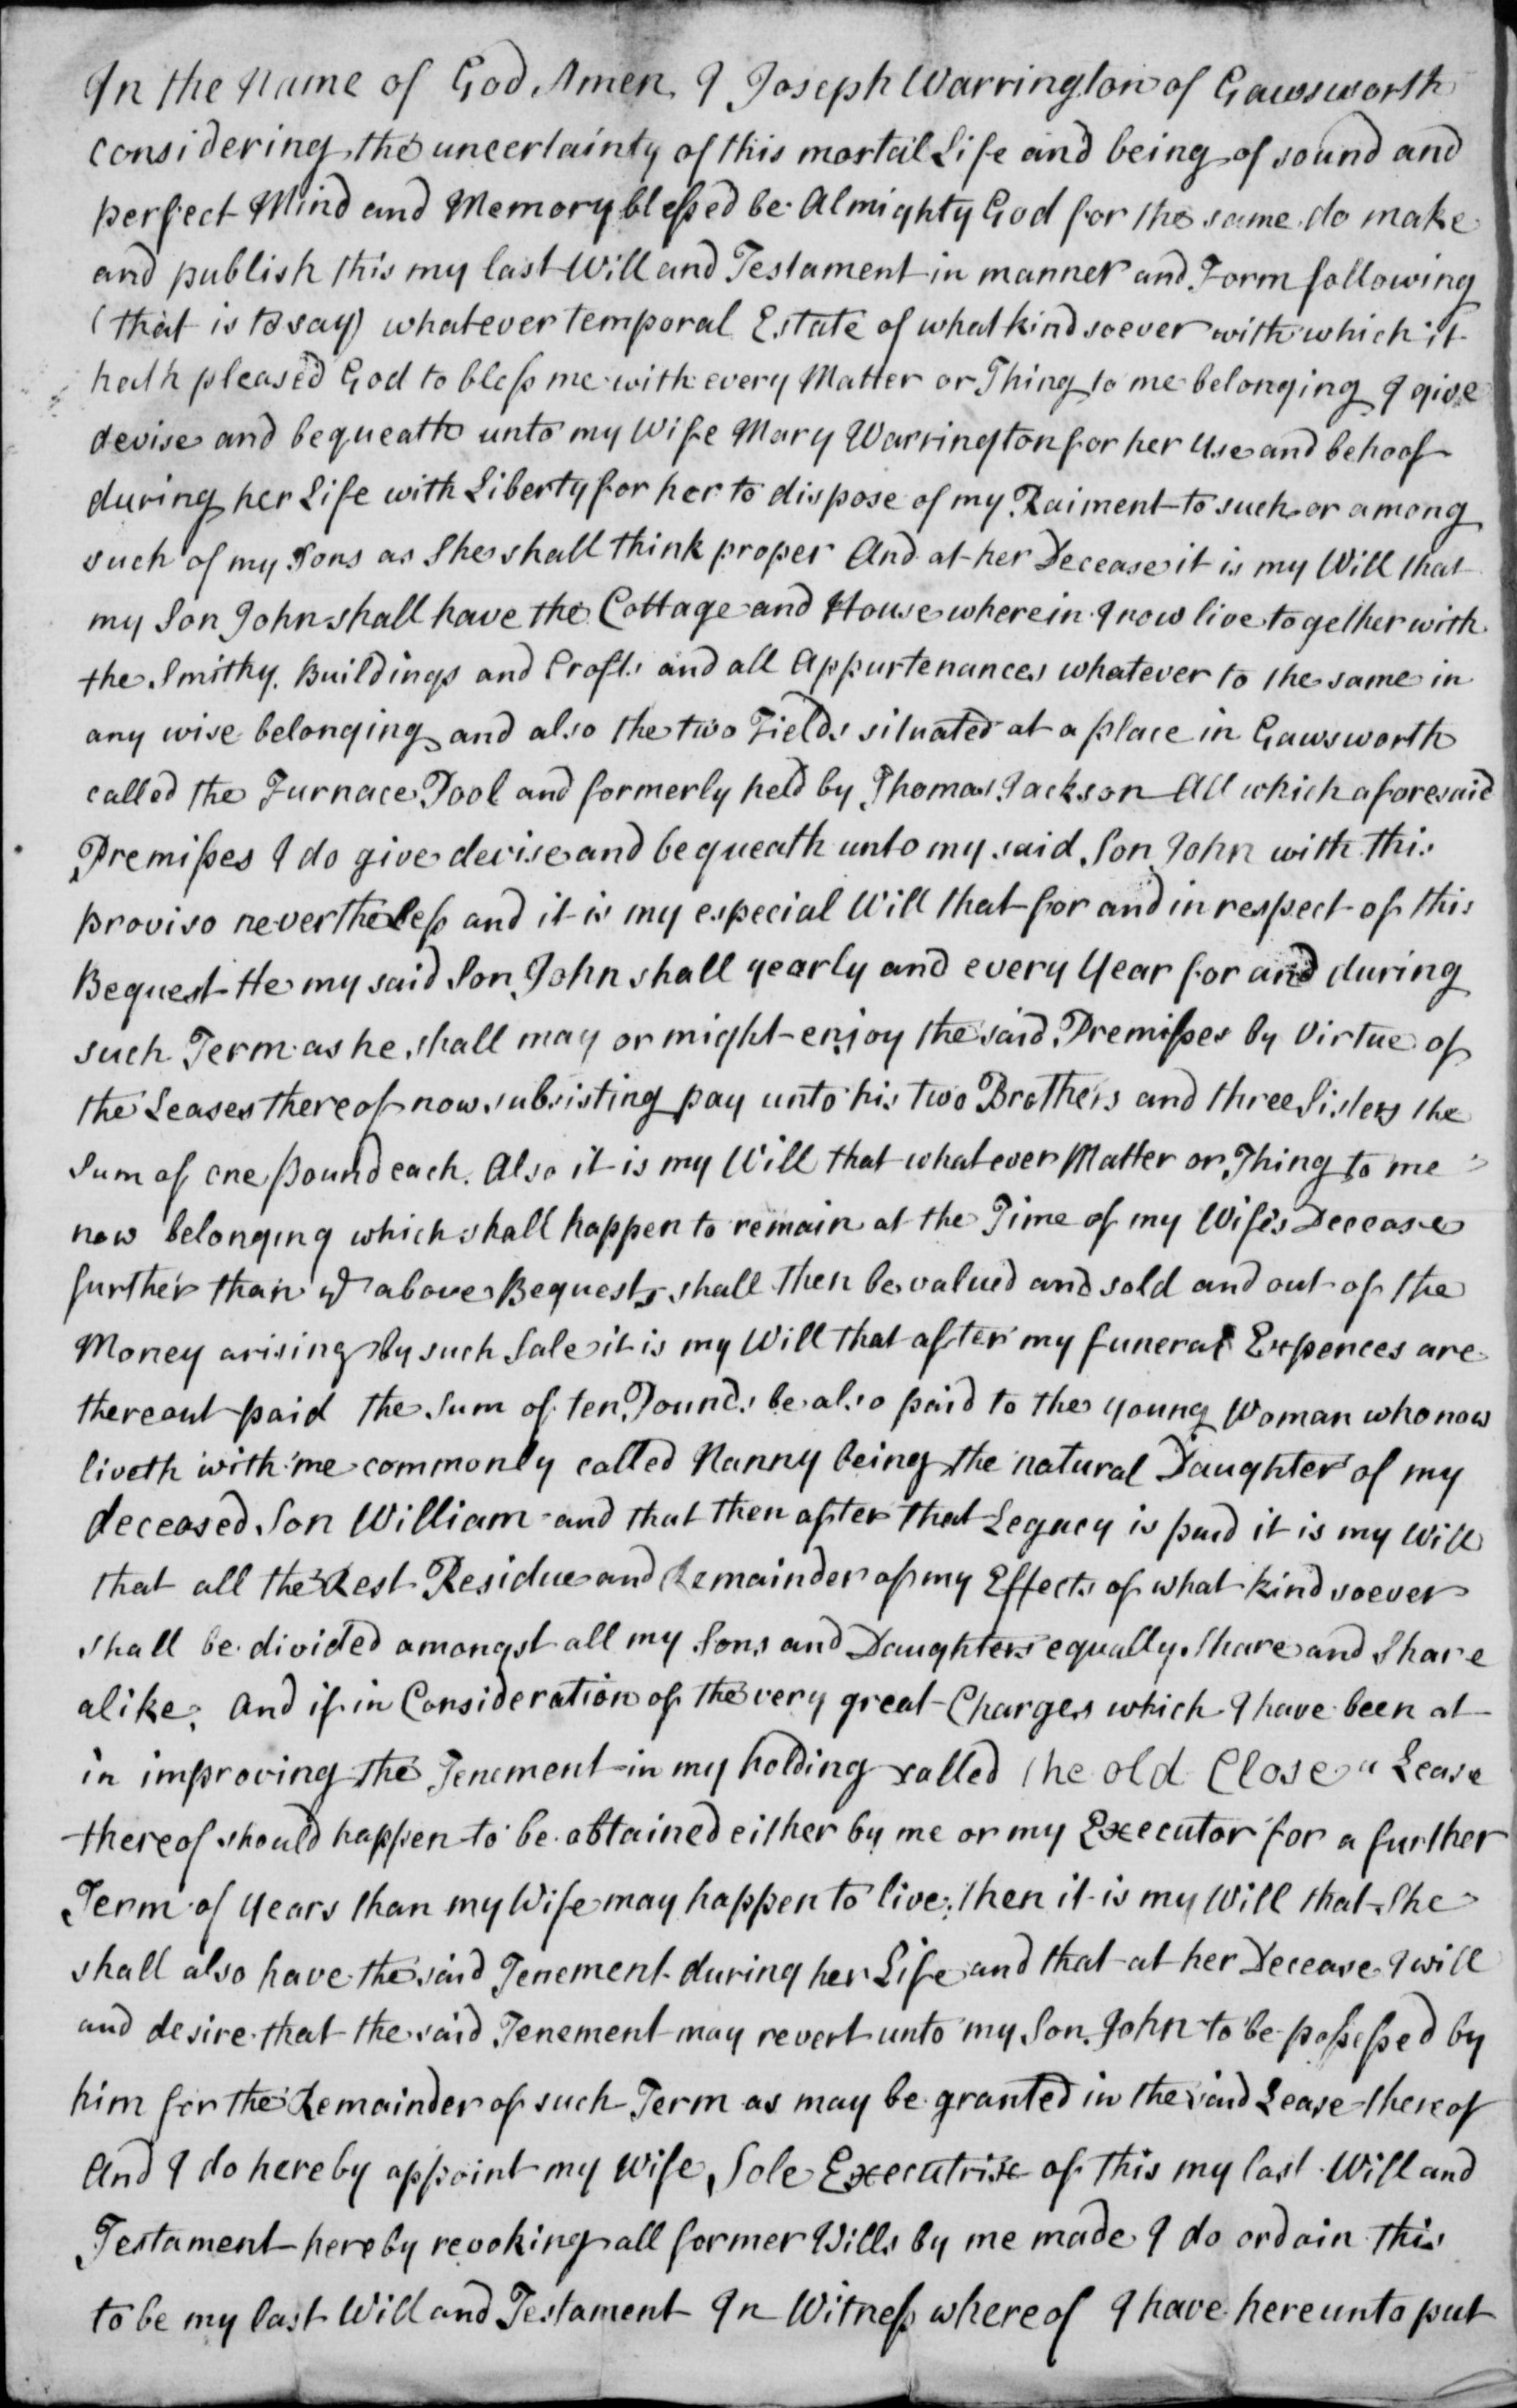 In the Name of God Amen, I Joseph Warrington of Gawsworth
considering the uncertainty of this mortal Life and being of sound and
perfect Mind and Memory blessed be Almighty God for the same do make
and publish this my last Will and Testament in manner and Form following
(that is to say) whatever temporal Estate of what kind soever with which it
hath pleased God to bless me with every Matter or Thing to me belonging I give
devise and bequeath unto my Wife Mary Warrington for her Use and behoof
during her Life with Liberty for her to dispose of my Raiment to such or among
such of my Sons as She shall think proper And at her Decease it is my Will that
my Son John shall have the Cottage and House wherein I now live together with
the Smithy, Buildings and Crofts and all Appurtenances whatever to the same in
any wise belonging and also the two Fields situated at a place in Gawsworth
called the Furnace Pool and formerly held by Thomas Jackson All which aforesaid
Premisses I do give devise and bequeath unto my said Son John with this
proviso nevertheless and it is my especial Will that for and in respect of this
Bequest He my said Son John shall yearly and every Year for and during
such Term as he shall may or might enjoy the said Premisses by Virtue of
the Leases thereof now subsisting pay unto his two Brothers and three Sisters the
Sum of one pound each. Also it is my Will that whatever Matter or Thing to me
now belonging which shall happen to remain at the Time of my Wife's Decease
further than ye above Bequests shall then be valued and sold and out of the
Money arising by such Sale it is my Will that after my funeral Expences are
thereout paid the Sum of ten Pounds be also paid to the young Woman who now
liveth with me commonly called Nanny being the natural Daughter of my
deceased Son William and that then after that Legacy is paid it is my Will
that all the Rest Residue and Remainder of my Effects of what kind soever
shall be divided amongst all my Sons and Daughters equally Share and Share
alike; And if in Consideration of the very great Charges which I have been at
in improving the Tenement in my holding called the old Close a Lease
thereof should happen to be obtained either by me or my Executor for a further
Term of Years than my Wife may happen to live; then it is my Will that She
shall also have the said Tenement during her Life and that at her Decease I will
and desire that the said Tenement may revert unto my Son John to be possessed by
him for the Remainder of such Term as may be granted in the said Lease thereof
And I do hereby appoint my Wife Sole Executrix of this my last Will and
Testament hereby revoking all former Wills by me made I do ordain this
to be my last Will and Testament In Witness whereof I have hereunto put